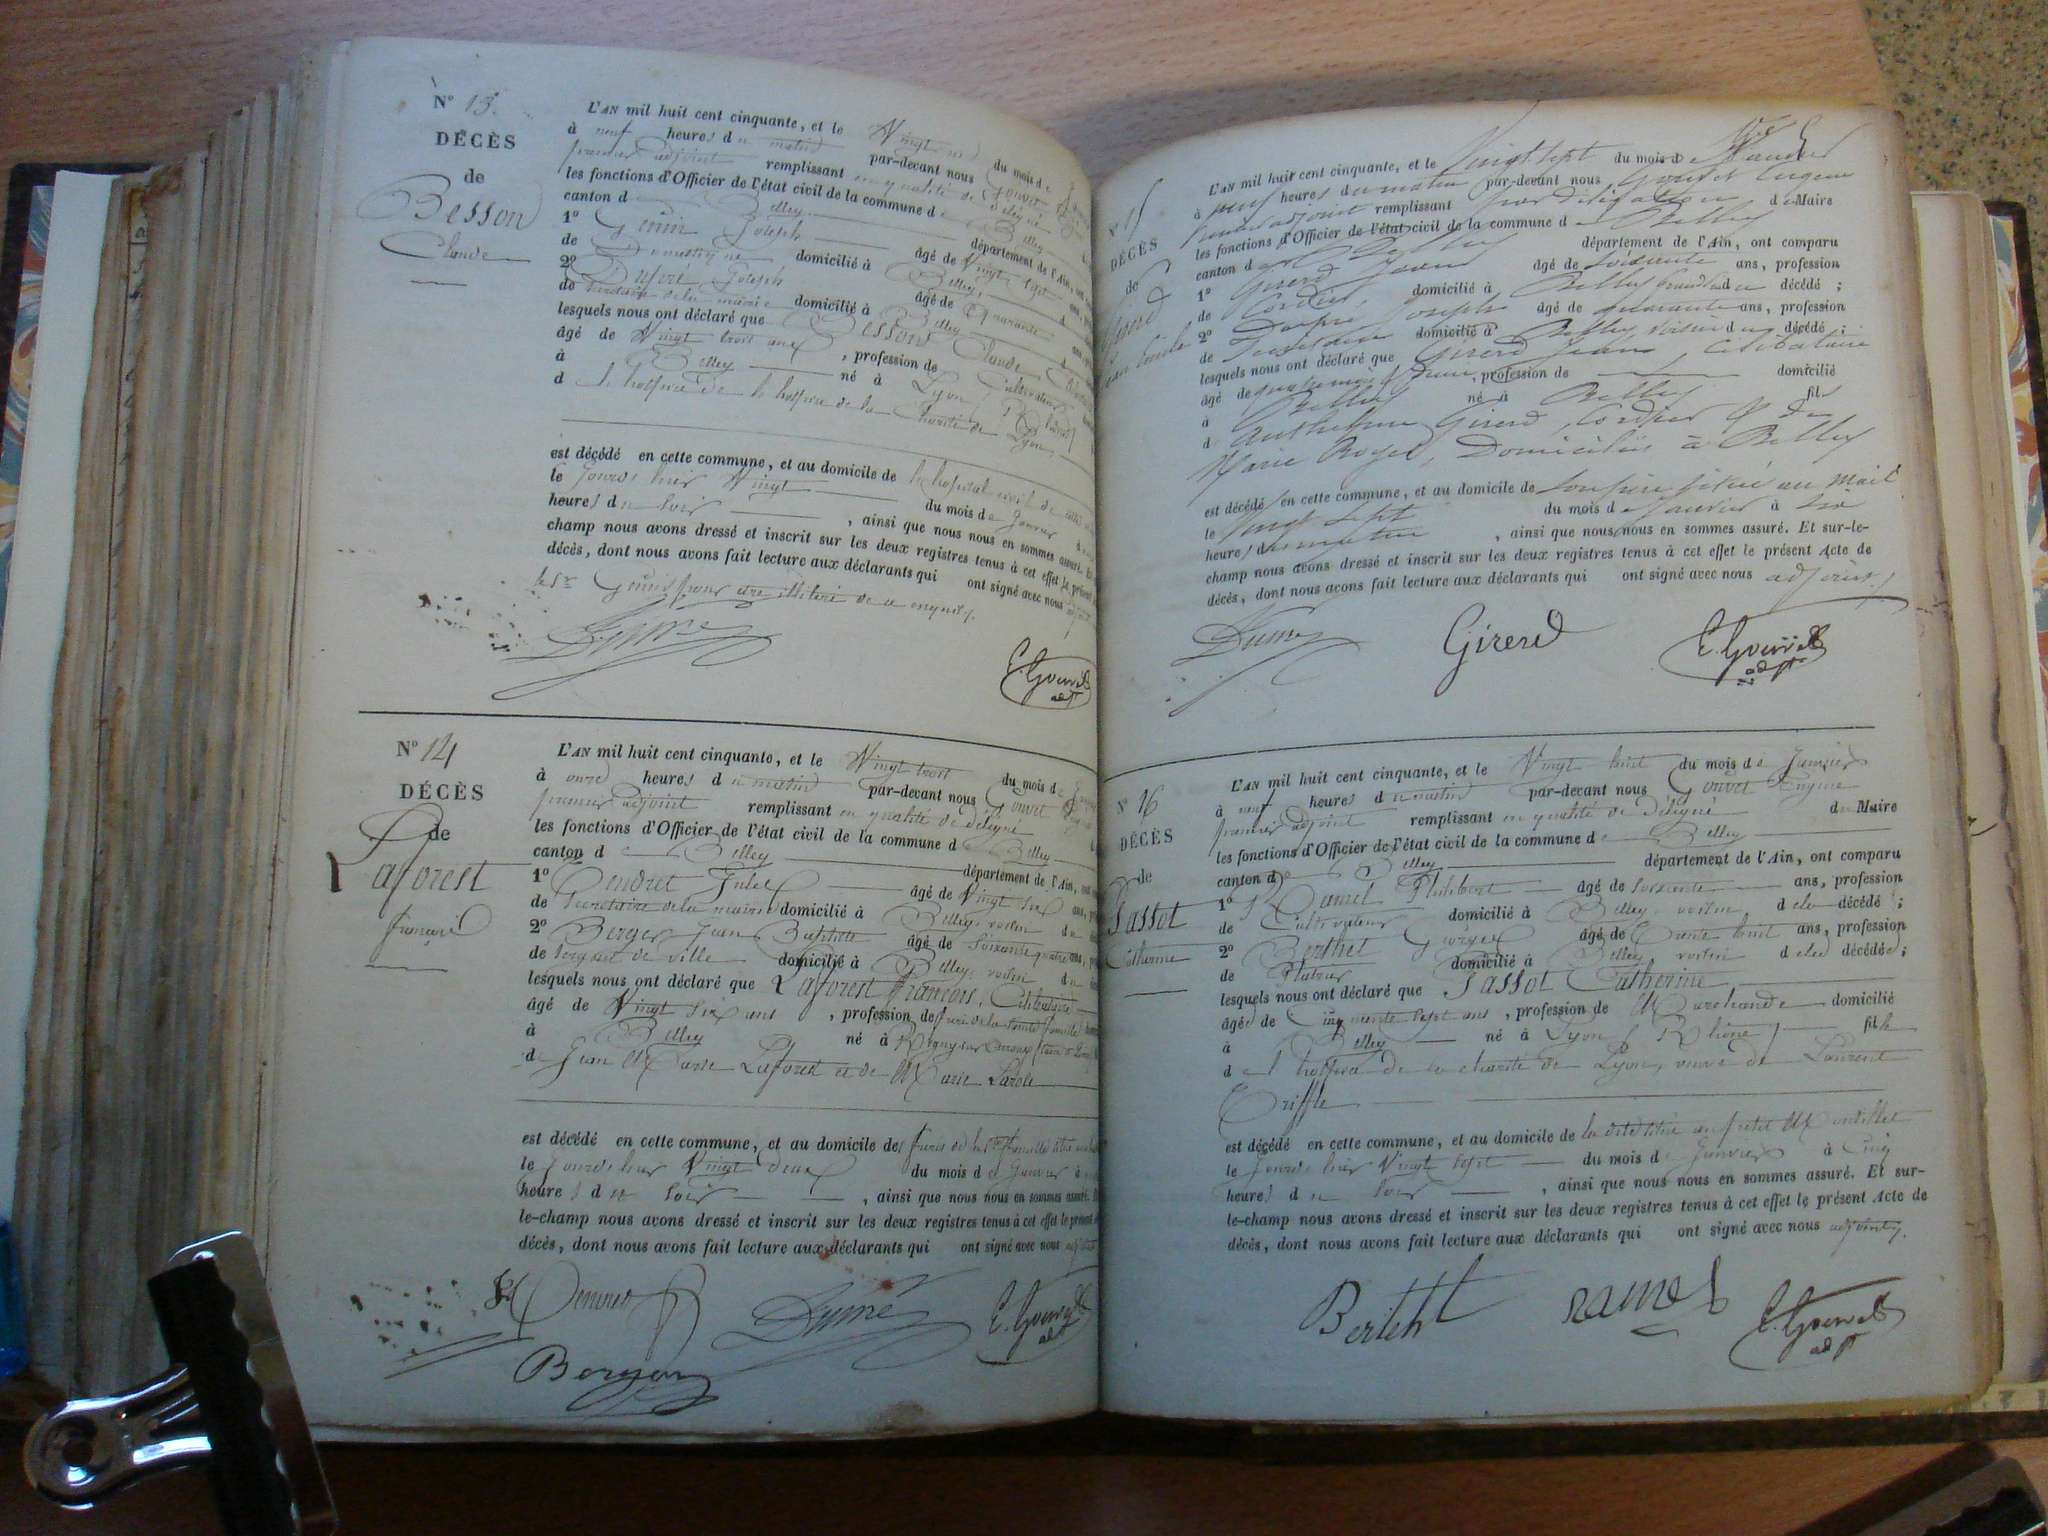 N° 13.
DÉCÈS
de
Besson
Claude
L'AN mil huit cent cinquante, et le Vingt un du mois de
à neuf heures du matin par-devant nous Gouvet
premier adjoint remplissant en qualité de délégué
les fonctions d'Officier de l'état civil de la commune de Belley
canton d Belley département de l'Ain,
1° Genin Joseph âgé de Vingt sept
de Domestique domicilié à Belley,
2° Dumé Joseph âgé de Quarante
de domicilié à Belley
lesquels nous ont déclaré que Besson Claude
âgé de Vingt trois ans, profession de Cultivateur
à Belley né à Lyon (Rhône)
d l'hospice de la Charité de Lyon,
est décédé en cette commune, et au domicile de l'hopital civil de
le Jourd'hier Vingt du mois de Janvier
heures du soir, ainsi que nous nous en sommes assuré. Et
champ nous avons dressé et inscrit sur les deux registres tenus à cet effet le présent
décès, dont nous avons fait lecture aux déclarants qui ont signé avec nous
Genin pour être illitéré de ce enquis
Dumé
E. Gouvet
adjt
N° 14
DÉCÈS
de
Laforest
françois
L'AN mil huit cent cinquante, et le Vingt trois du mois de
à onze heures du matin par-devant nous Gouvet
premier adjoint remplissant en qualité de délégué
les fonctions d'Officier de l'état civil de la commune de Belley
canton d Belley département de l'Ain,
1° Jules âgé de Vingt six
de Secrétaire de la mairie domicilié à Belley, voisin du
2° Berger Jean Baptiste âgé de Soixante quatre
de Sergent de ville domicilié à Belley, voisin du
lesquels nous ont déclaré que Laforest François, Célibataire
âgé de Vingt six ans, profession de frère de la Sainte famille
à Belley né à Rigny sur Arroux
de Jean Marie Laforest et de Marie
est décédé en cette commune, et au domicile des frères de la Ste famille
le Jourd'hier Vingt deux du mois de Janvier à
heures du soir, ainsi que nous nous en sommes assuré. Et
le-champ nous avons dressé et inscrit sur les deux registres tenus à cet effet le présent
décès, dont nous avons fait lecture aux déclarants qui ont signé avec nous adjoint
Dumé
E. Gouvet
adjt
Berger
N° 15
DÉCÈS
de
Girerd
Jean
L'AN mil huit cent cinquante, et le Vingt sept du mois de Janvier
à neuf heures du matin par-devant nous Gouvet Eugene
premier adjoint remplissant par délégation du Maire
les fonctions d'Officier de l'état civil de la commune de Belley
canton de Belley département de l'Ain, ont comparu
1° Girerd âgé de soixante ans, profession
de Cordier, domicilié à Belley décédé;
2° Dumé Joseph âgé de quarante ans, profession
de domicilié à Belley, voisin du décédé;
lesquels nous ont déclaré que Girerd Jean, Célibataire
âgé de, profession de domicilié
à Belley né à Belley fils
d'Anthelme Girerd, Cordier & de
Marie Roger, Domiciliés à Belley
est décédé en cette commune, et au domicile de son père situé au Mail
le Vingt sept du mois de Janvier à six
heures du matin, ainsi que nous nous en sommes assuré. Et sur-le-
champ nous avons dressé et inscrit sur les deux registres tenus à cet effet le présent Acte de
décès, dont nous avons fait lecture aux déclarants qui ont signé avec nous adjoint.
Dumé
Girerd
E. Gouvet
adjt
N° 16
DÉCÈS
de
Passot
Catherine
L'AN mil huit cent cinquante, et le Vingt huit du mois de Janvier
à neuf heures du matin par-devant nous Gouvet Eugène
premier adjoint remplissant en qualité de délégué du Maire
les fonctions d'Officier de l'état civil de la commune de Belley
canton de Belley département de l'Ain, ont comparu
1° Ramel Philibert âgé de soixante ans, profession
de Cultivateur domicilié à Belley, voisin de la décédé;
2° Berthet Georges âgé de trente huit ans, profession
de Platrier domicilié à Belley voisin de la décédée;
lesquels nous ont déclaré que Passot Catherine
âgée de Cinquante sept ans, profession de Marchande domicilié
à Belley né à Lyon (Rhône) fille
de l'hospice de la charité de Lyon, veuve de Laurent
Triffle
est décédé en cette commune, et au domicile de la dite située au petit
le Jourd'hier Vingt sept du mois de Janvier à Cinq
heures du soir, ainsi que nous nous en sommes assuré. Et sur-
le-champ nous avons dressé et inscrit sur les deux registres tenus à cet effet le présent Acte de
décès, dont nous avons fait lecture aux déclarants qui ont signé avec nous adjoint.
Berteht
ramel
E. Gouvet
adjt